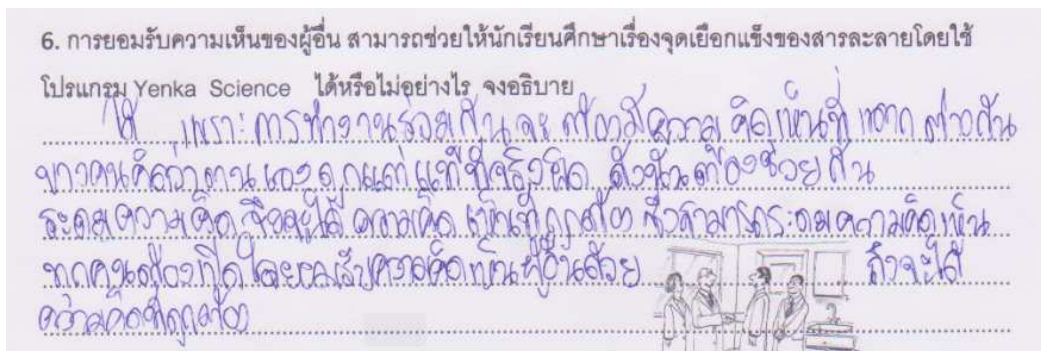 6. การยอมรับความเห็นของผู้อื่น สามารถช่วยให้นักเรียนศึกษาเรื่องจุดเยือกแข็งของสารละลายโดยใช้
โปรแกรม Yenka Science ได้หรือไม่อย่างไร จงอธิบาย
ได้ เพราะการทำงานร่วมกันจะต้องมีความคิดเห็นที่แตกต่างกัน
บางคนคิดว่างานของถูกแต่แท้ที่จริงผิด ดังนั้นต้องช่วยกัน
ระดมความคิด จึงจะได้ความคิดเห็นที่ถูกต้อง ซึ่งสามารถระดมความคิดเห็น
ทุกคนต้องเปิดใจยอมรับความคิดเห็นผู้อื่นด้วย ถึงจะได้
ความคิดที่ถูกต้อง